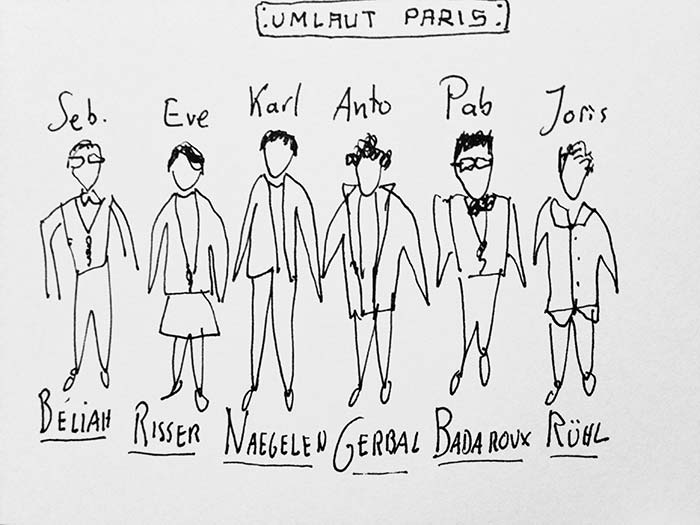 :UMLAUT PARIS:
Seb. Eve Karl Anto Pab Joris
BÉLIAH RISSER NAEGELEN GERBAL BADAROUX RÜHL